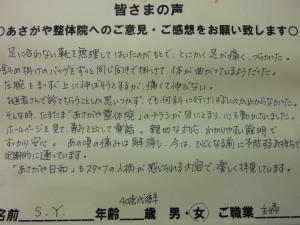 皆さまの声
○あさがや整体院へのご意見・ご感想をお願い致します○
足に合わない靴を無理してはいたのがもとで、とにかく足が痛く、つらかった。
斜め掛けのバッグをずっと同じ向きで掛けて、体が曲がっているようだった。
左腕をまっすぐ上に伸ばそうとするが、痛くて伸びない。
お医者さんで診てもらうことも思いつかず、でも何科に行けばよいのかわからなかった。
そんな時、たまたま「あさがや整体院」のチラシが目にとまり、心を動かされました。
ホームページを見て、勇気を出して電話。親切な対応、わかりやすい説明で
すっかり安心。あの頃の痛みは解消し、今は、ひどくなる前に予防するお気持ちで
定期的に通っています。
「あさがや日和」もスタッフの人柄が感じられる内容で、楽しく拝見しています。
名前 S.Y. 年齢 40歳代後半 歳 男・女 ご職業 主婦